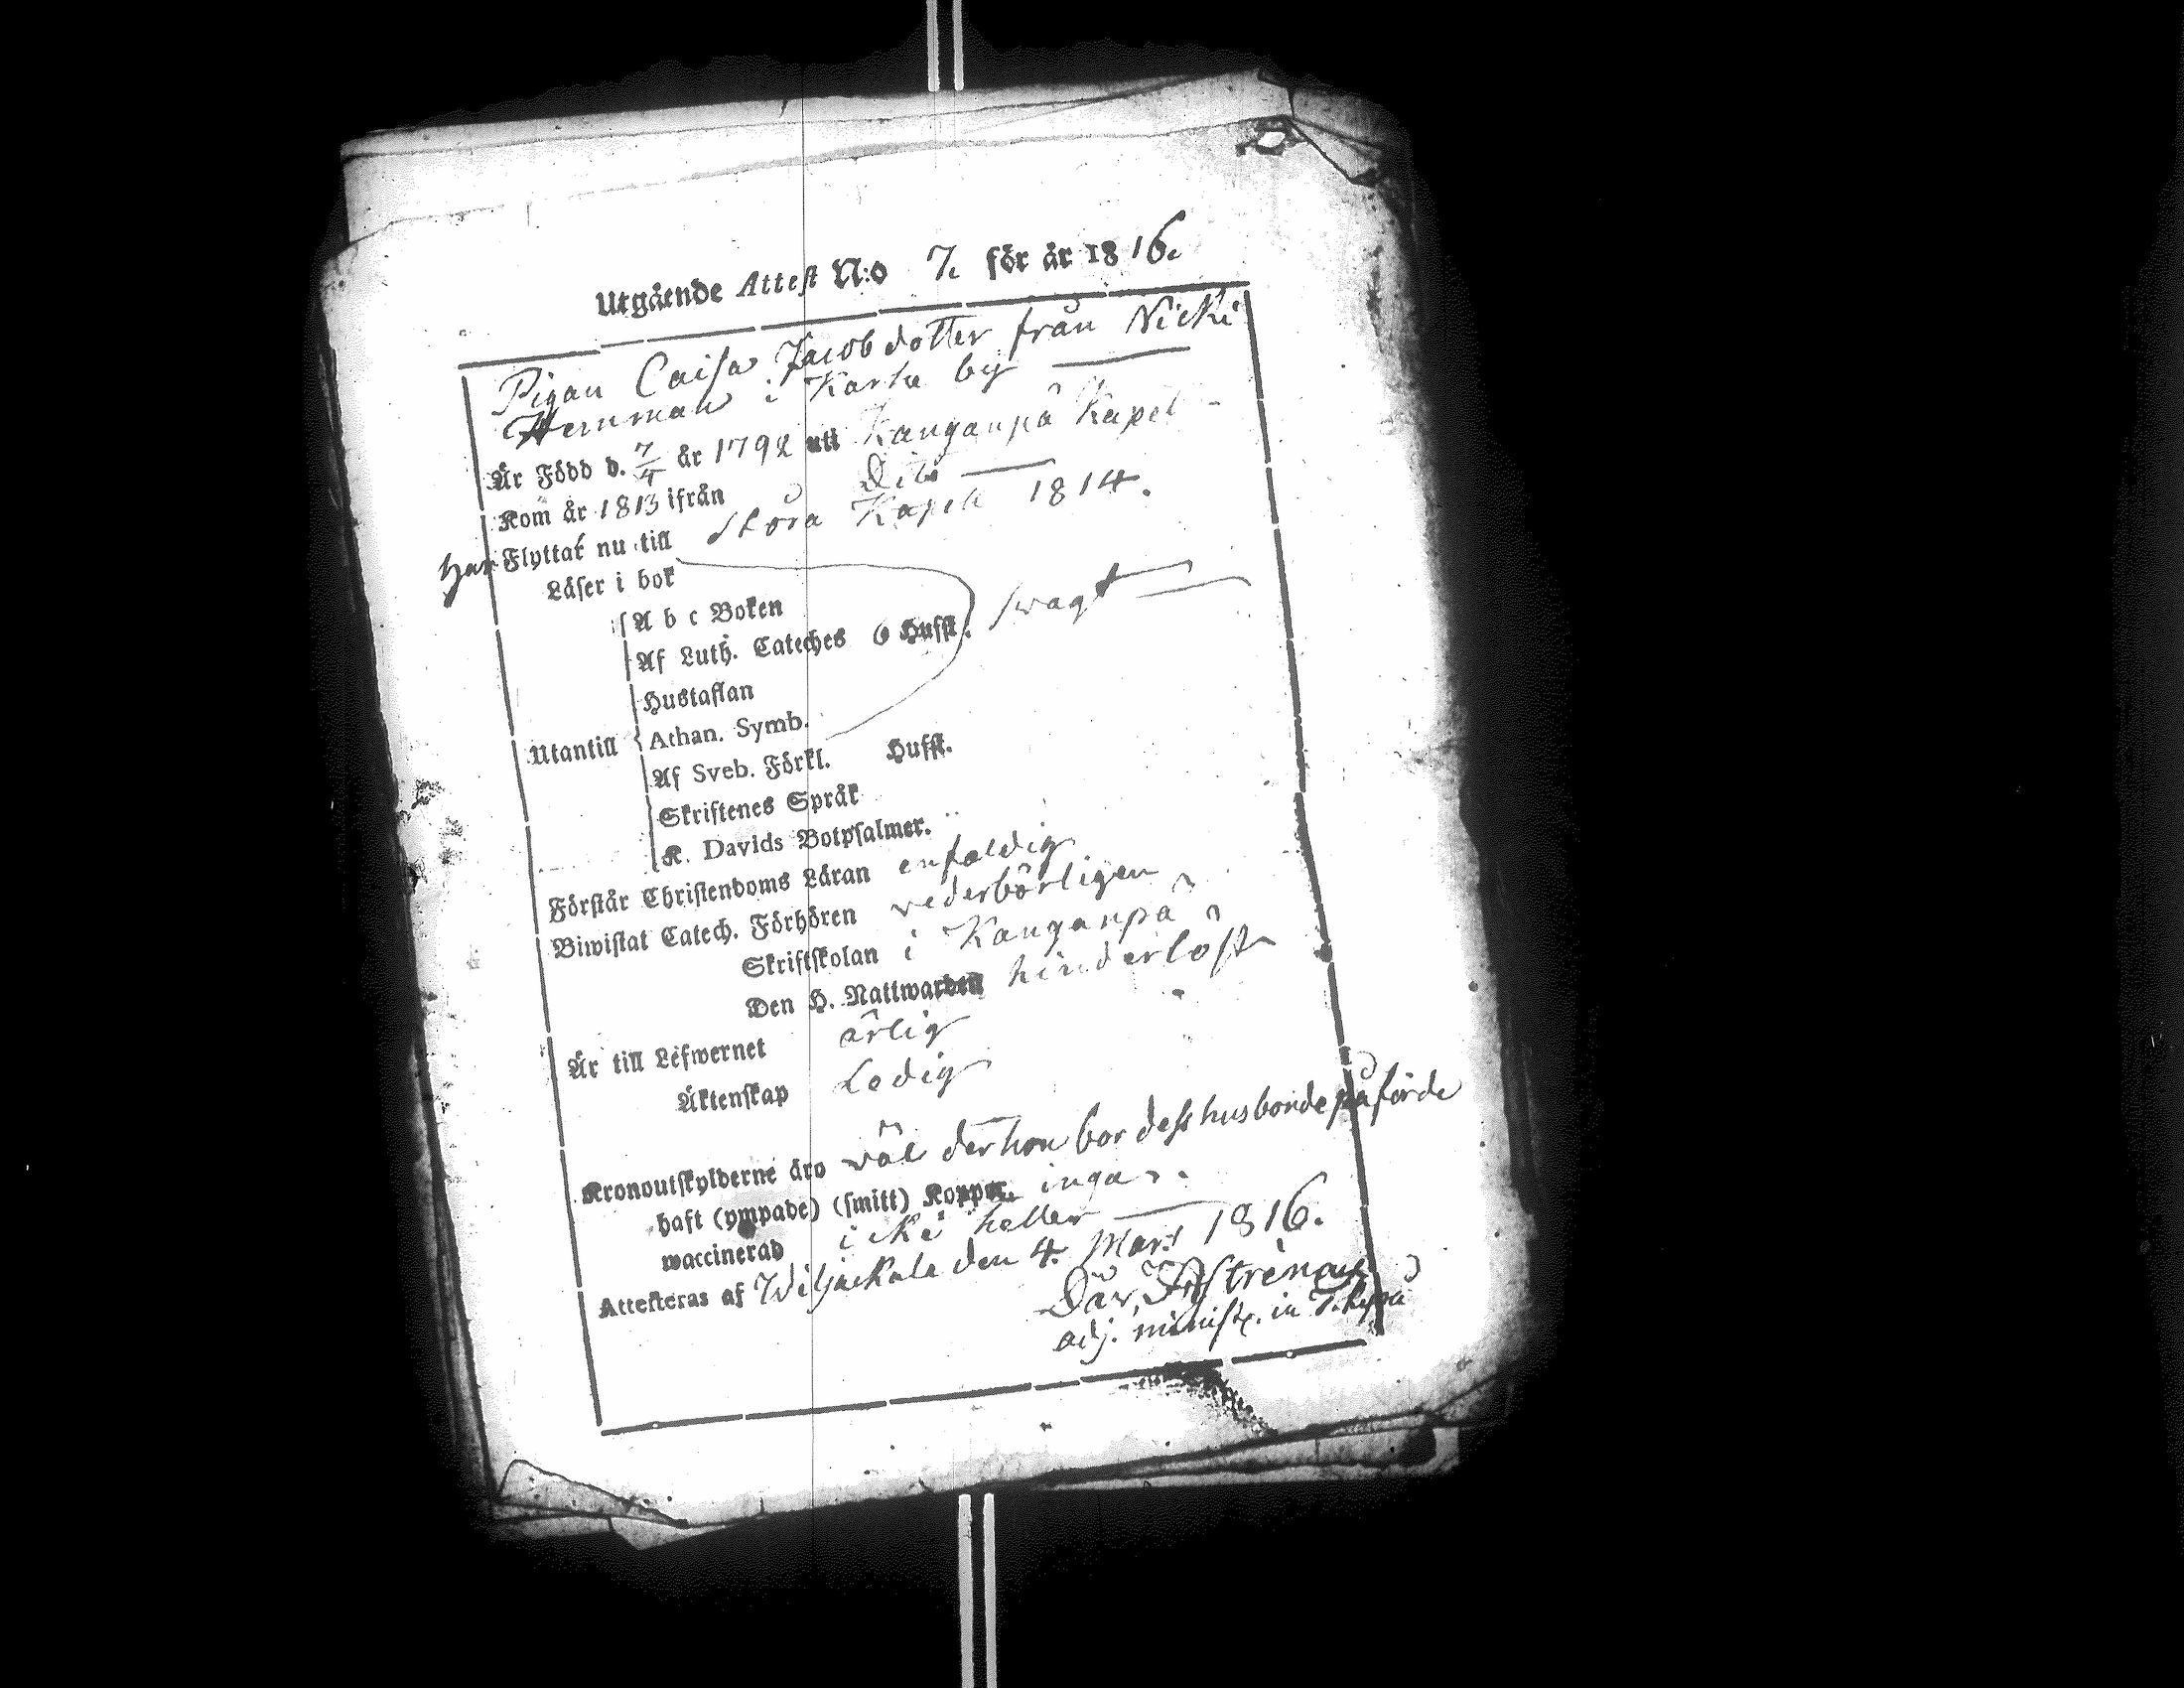 Utgående Attest N:o 7. för år 1816.
Pigan Caisa Jacobdotter från Nicki
Hernman i Karhe by
Är Född d. 7/4 år 1792 uti Kanganpä Kapel
Kom år 1813 ifrån Dito
har Flyttat nu till stora Kapell 1814.
Läser i bok
A b c Boken
Af Luth. Cateches 6 Hufst. swagt
Hustaflan
Utantill Athan. Symb.
Af Sveb. Förkl. Hufst.
Skriftenes Språk
K. Davids Botpsalmer.
Förstår Christendoms Läran enfaldig
Biwistat Catech. Förhören vederbörligen
Skriftskolan i Kanganpä
Den H. Nattwarden hinderlöst
Är till Lefwernet ärlig
Äktenskap Ledig
Kronoutskylderne äro väl der hon bor dess husbonde påförde
haft (ympade) (smitt) Koppor. inga
waccinerad icke heller
Attesteras af Wiljackala den 4. Mart 1816.
Dav.
adj. minist. in